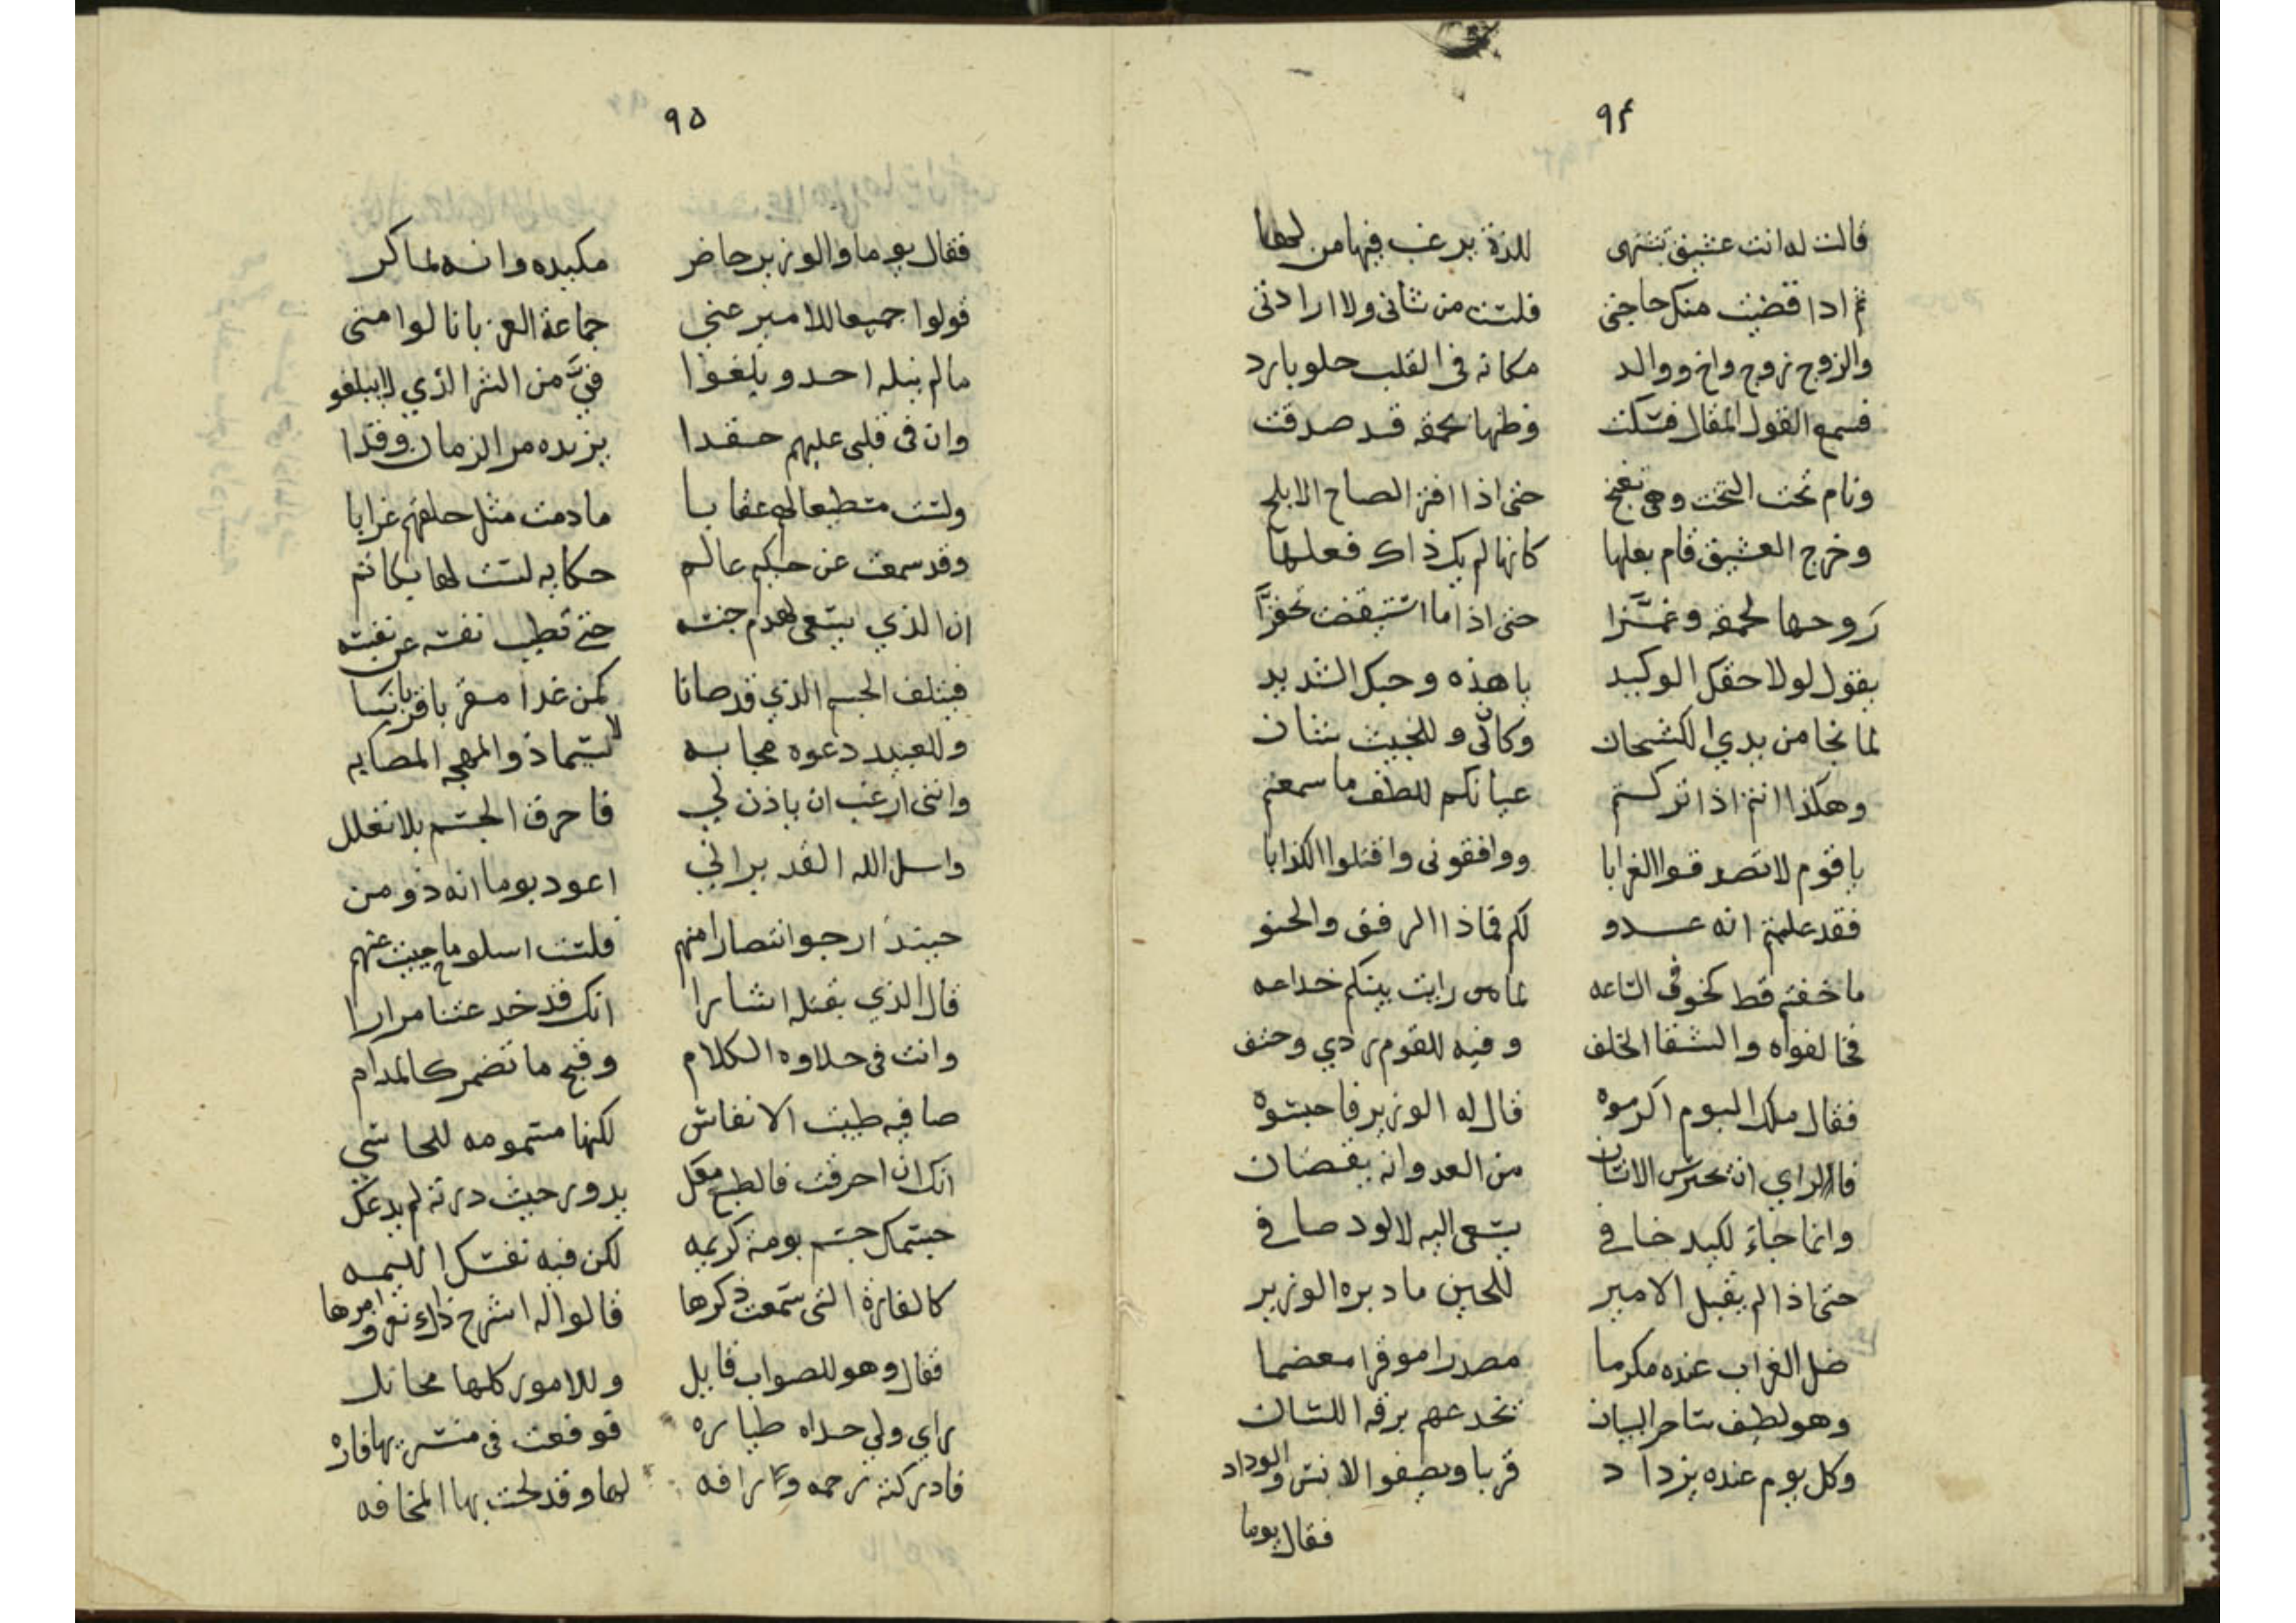 ٩٤
قالت له انت عشيق تشتهى للذة يرغب فيها من لها
ثم اذا قضيت منك حاجتى فلست من شانى ولا ارادتى
والزوج زوج واخ ووالد مكانه فى القلب حلو بارد
فسمع القول المقال فسكت وظنها بحمقه قد صدقت
ونام تحت التخت وهى تغنج حتى اذا افتر الصباح الابلج
وخرج العشيق قام بعلها كانها لم يك ذاك فعلها
روحها لحمقه وغمزا حتى اذا ما استيقضت تحفزا
يقول لولا حقك الوكيد يا هذه وحبك الشديد
لما نجا من يدي الكشحان وكان لى وللخبيث شان
وهكذا انتم اذا تركتم عيانكم للطف ما سمعتم
يا قوم لا تصدقوا الغرابا ووافقونى واقتلوا الكذابا
فقد علمتم انه عدو لكم فماذا الرفق والحنو
ما خفتم قط كخوفى الساعه لما رايت بينكم خداعه
فخالفواه والشقا الخلف وفيه للقوم ردي وحتف
فقال ملك البوم اكرموه قال له الوزير فاحبسوه
فالراي ان يحترس الانسان من العدو انه يقضان
وانما جاء لكيد خافي يسعى اليه لا لود صافي
حتى اذا لم يقبل الامير للحين ما دبره الوزير
ضل الغراب عنده مكرما مصدرا موقرا معضما
وهو لطيف ساحر البيان يخدعهم برقة اللسان
وكل يوم عنده يزداد قربا ويصفو الانس والوداد
فقال يوما
٩٥
فقال يوما والوزير حاضر مكيده وانه لماكر
قولوا جميعا للامير عني جماعة الغربا نالوا منى
ما لم ينله احد ويلغوا فيَّ من الشر الذي لا يبلغو
وان فى قلبى عليهم حقدا يزيده مر الزمان وقدا
ولست مستطيعا لهم عقابا ما دمت مثل خلقهم غرابا
وقد سمعت عن حكيم عالم حكايه لست لها بكاتم
ان الذي يسعى لهدم جثته حتى تطيب نفسه عن نفسه
فيتلف الجسم الذي قد صانا كمن غدا مقربا قربانا
وللعبيد دعوه مجابه لا سيما ذو المهجه المصابه
واننى ارغب ان ياذن لي فاحرق الجسم بلا تعلل
واسل الله القدير اني اعود بوما انه ذو من
حينئذ ارجو انتصارا منهم فلست اسلو ما حييت عنهم
قال الذي بقتله اشارا انك قد خدعتنا مرارا
وانت فى حلاوه الكلام وقبح ما تضمر كالمدام
صافيه طيبت الانفاس لكنها مسمومه للحاسي
انك ان احرقت فالطبع معك يدور حيث درته لم يدعك
جسمك جسم بومة كريمه لكن فيه نفسك اللييمه
كالفارة التى سمعت ذكرها قالوا له اشرح ذاك نعرف امرها
فقال وهو للصواب قايل وللامور كلها مخايل
راي ولي حداه طياره فوقعت فى منسريها فاره
فادركته رحمه ورافه لها وقد لحت بها المخافه